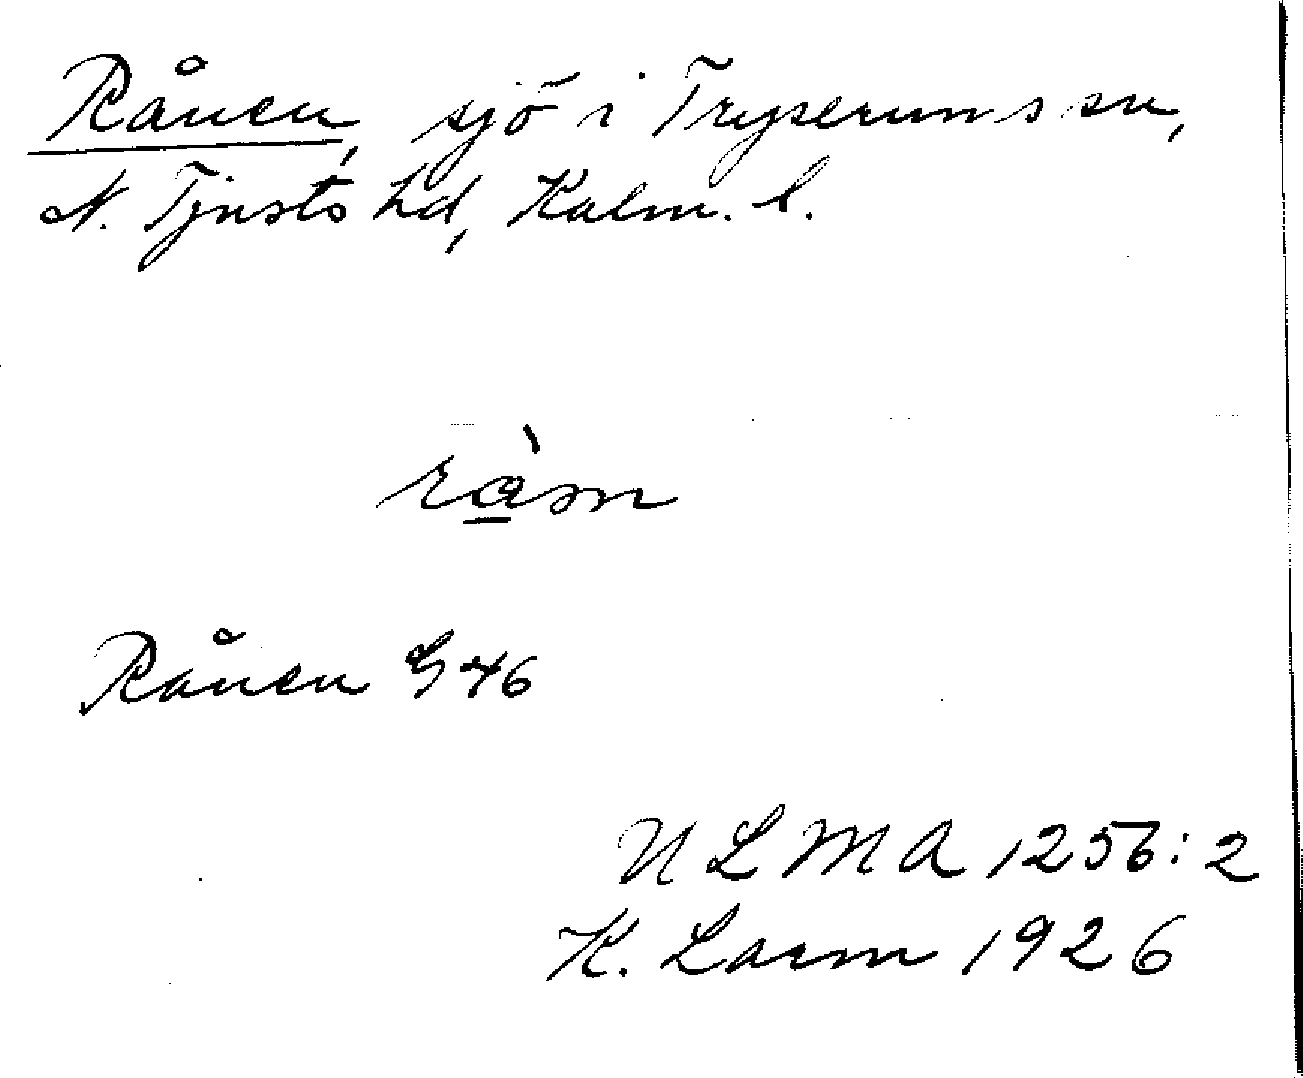 Rånen, sjö i Tryserums sn,
N. Tjusts hd, Kalm. l.
Rånen G 46
ULMA 1256:2
K. Larm 1926